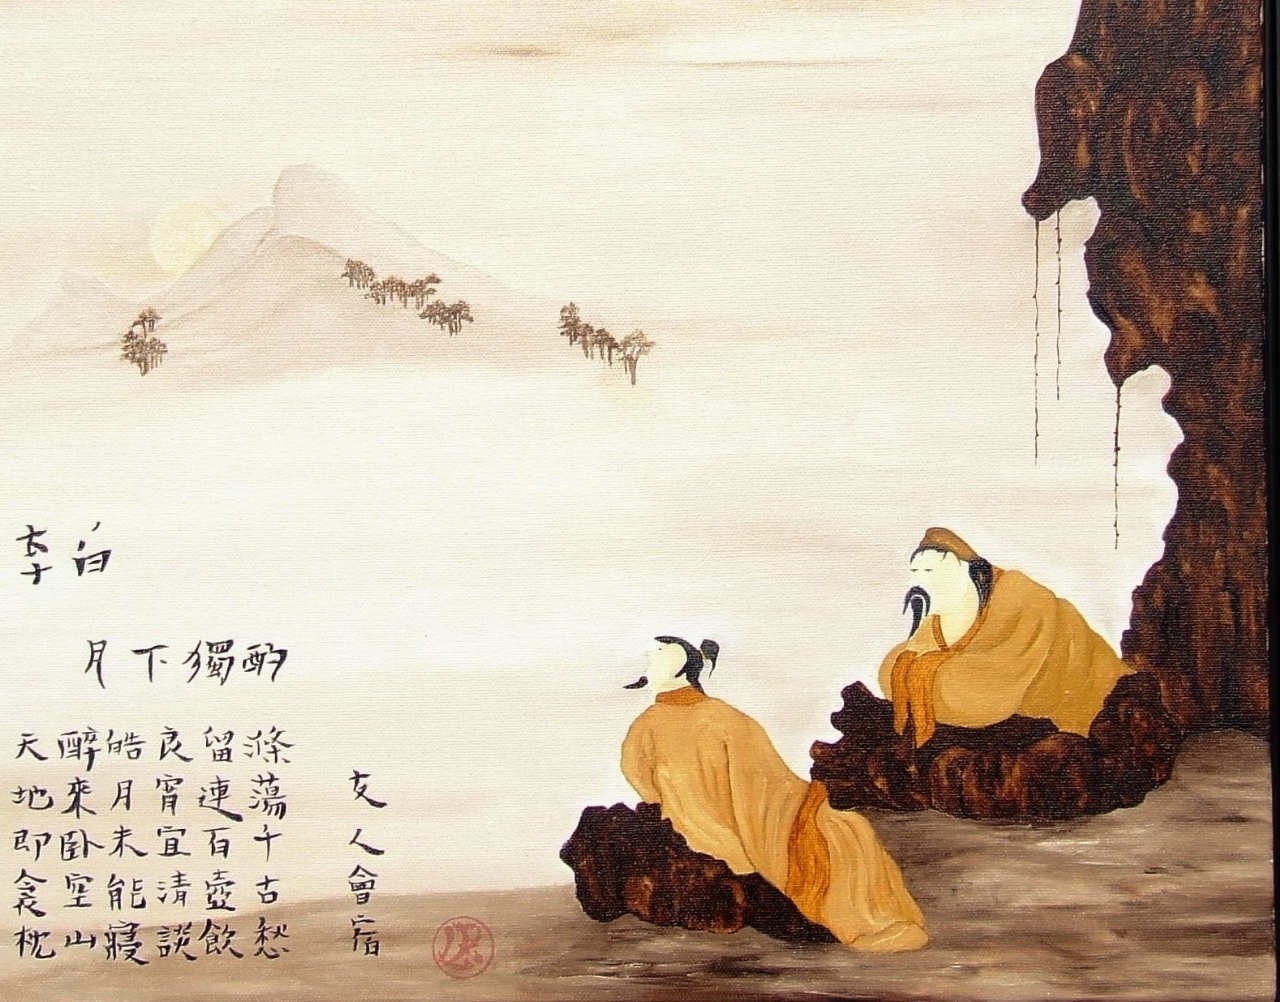 李白
月下獨酌
友人會宿
滌蕩千古愁
留連百壺飲
良宵宜清談
皓月未能寢
醉來卧空山
天地即衾枕